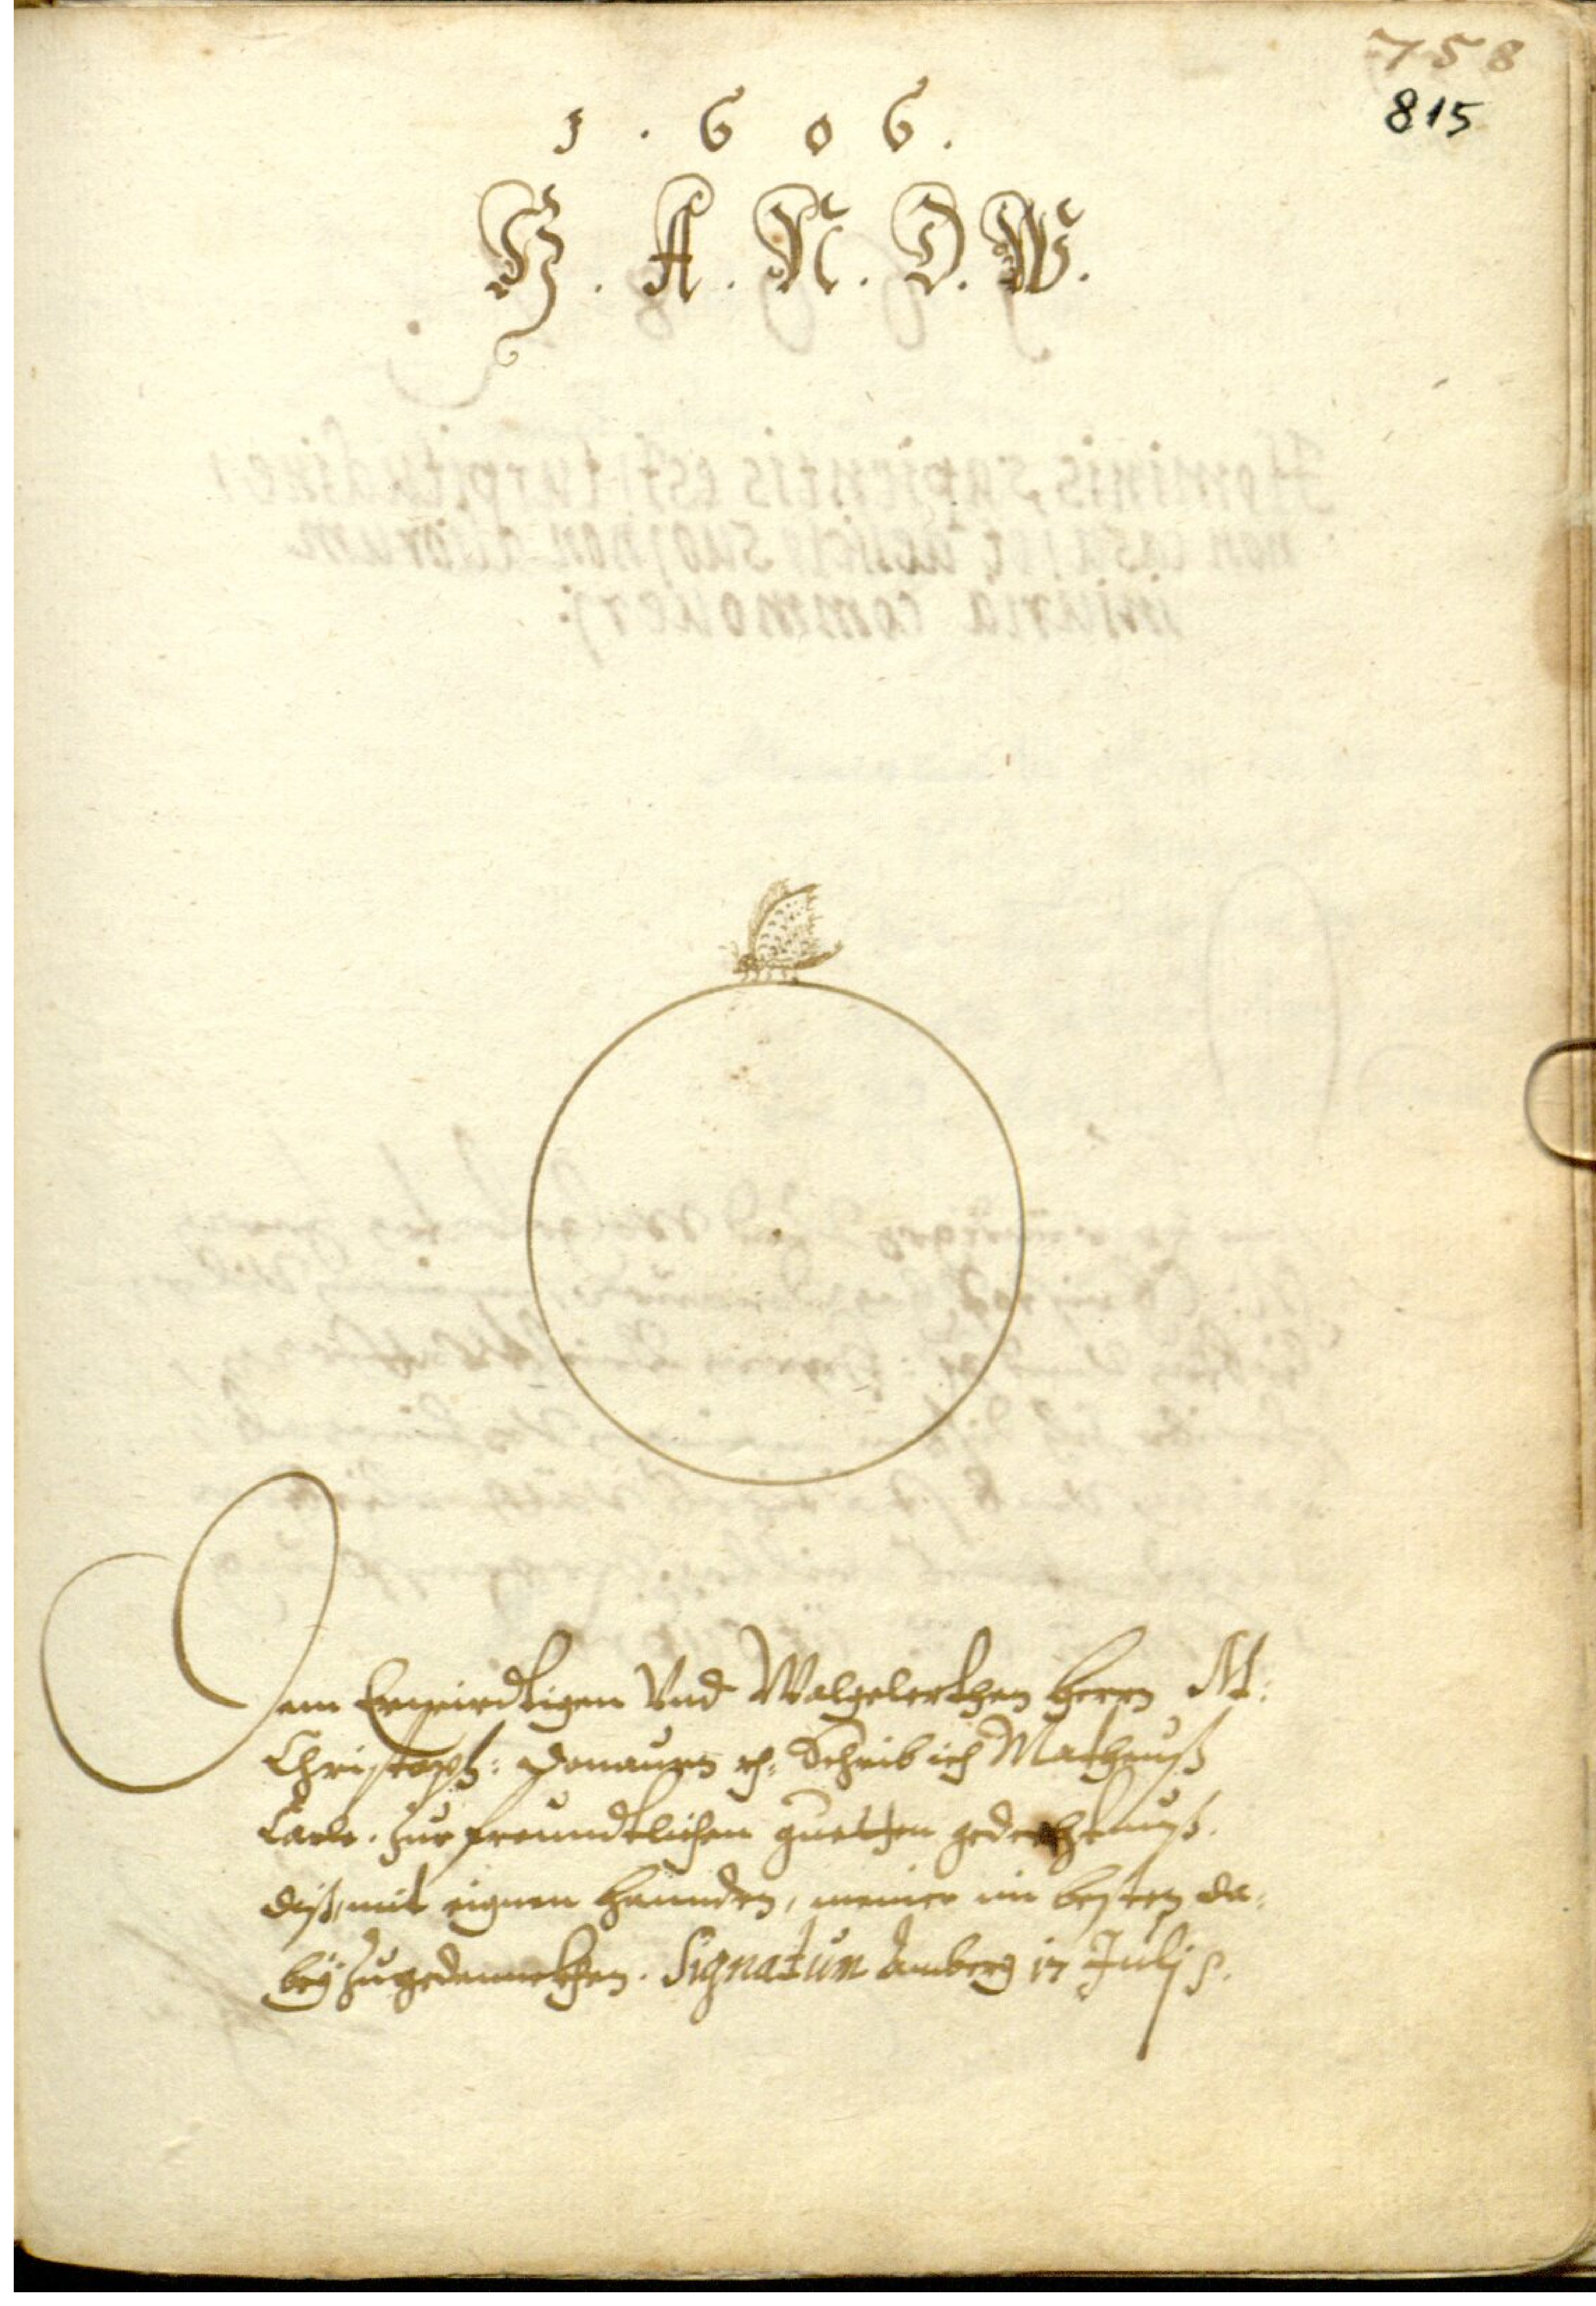 758
815
1 . 6 0 6 .
G . A . N . D . W .
Dem Erwirdtigen Vnd Walgelerthen Herrn M:
Christoph: Donaurn ꝛc. Schrib ich Matheuß
Carle. zur freundtlichen guetten gedechtnuß.
diß, mit eignen hannden, meiner im besten da-
beÿ zugedennekhen. Signatum Amberg 17 Julj